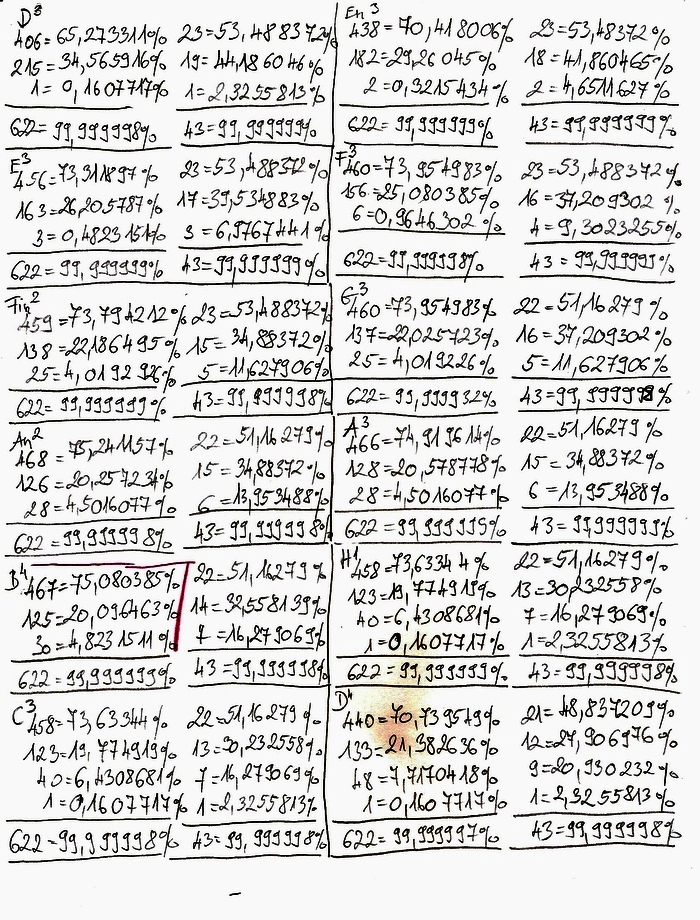 D³
406=65,273311% 23=53,488372%
215=34,565916% 19=44,186046%
1=0,1607717% 1=2,3255813%
622=99,999998% 43=99,999999%
En³
438=70,418006% 23=53,48372%
182=29,26045% 18=41,860465%
2=0,3215434% 2=4,6511627%
622=99,999999% 43=99,999999%
E³
456=73,311897% 23=53,488372%
163=26,205787% 17=39,534883%
3=0,4823151% 3=6,9767441%
622=99,999999% 43=99,999999%
F³
460=73,954983% 23=53,488372%
156=25,080385% 16=37,209302%
6=0,9646302% 4=9,3023255%
622=99,99998% 43=99,999999%
Fis²
459=73,794212% 23=53,488372%
138=22,186495% 15=34,88372%
25=4,0192926% 5=11,627906%
622=99,999999% 43=99,999998%
G³
460=73,954983% 22=51,16279%
137=22,025723% 16=37,209302%
25=4,019226% 5=11,627906%
622=99,999932% 43=99,999998%
An²
468=75,241157% 22=51,16279%
126=20,257234% 15=34,88372%
28=4,5016077% 6=13,953488%
622=99,99998% 43=99,999998%
A³
466=74,919614% 22=51,16279%
128=20,578778% 15=34,88372%
28=4,5016077% 6=13,953488%
622=99,999995% 43=99,999999%
B⁴
467=75,080385% 22=51,16279%
125=20,096463% 14=32,558139%
30=4,8231511% 7=16,279069%
622=99,9999999% 43=99,999998%
H¹
458=73,63344% 22=51,16279%
123=19,774919% 13=30,232558%
40=6,4308681% 7=16,279069%
1=0,1607717% 1=2,3255813%
622=99,999999% 43=99,999998%
C³
458=73,63344% 22=51,16279%
123=19,774919% 13=30,232558%
40=6,4308681% 7=16,279069%
1=0,1607717% 1=2,3255813%
622=99,999998% 43=99,999998%
D⁴
440=70,739549% 21=48,837209%
133=21,382636% 12=27,906976%
48=7,7170418% 9=20,930232%
1=0,1607717% 1=2,3255813%
622=99,999997% 43=99,999998%